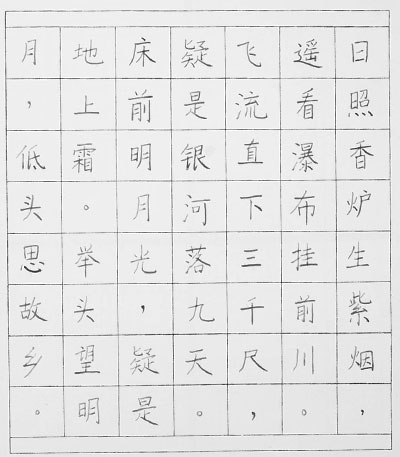 日照香炉生紫烟，
遥看瀑布挂前川。
飞流直下三千尺，
疑是银河落九天。
床前明月光，疑是
地上霜。举头望明
月，低头思故乡。